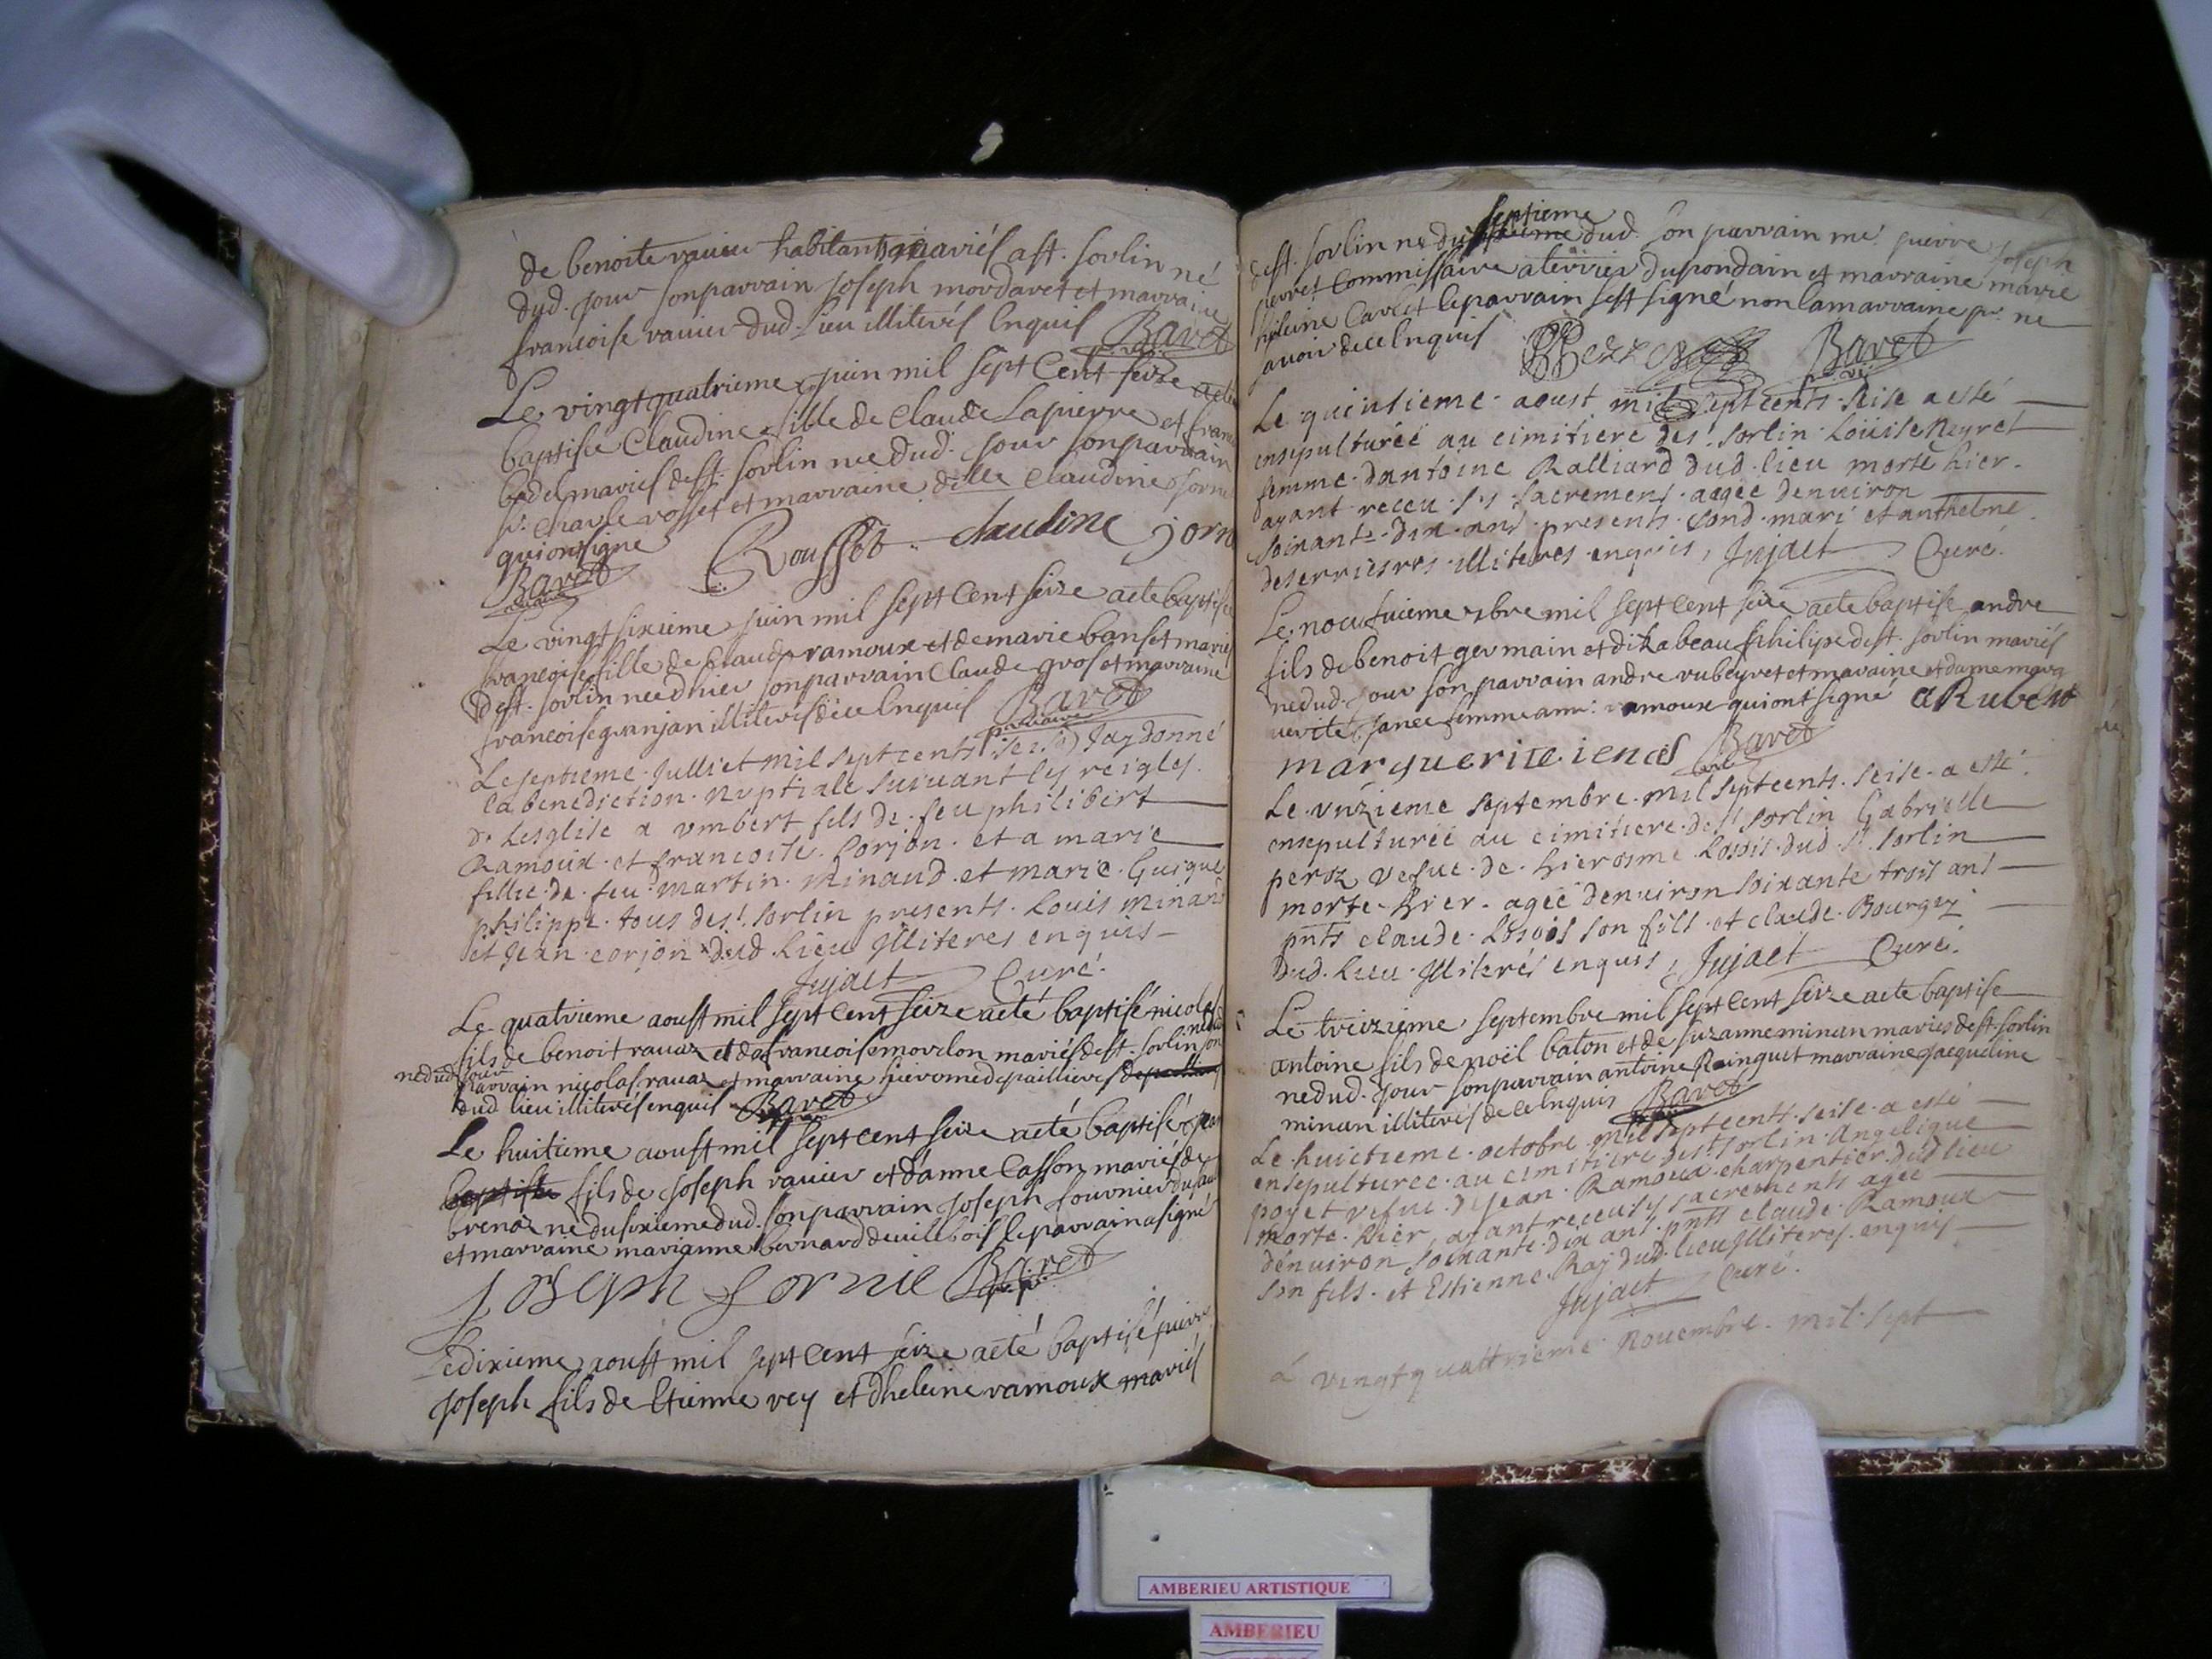 de benoite ravier habitants mariés a st. sorlin né
dud. jour son parrain joseph mordaret et marraine
francoise ravier dud. lieu illiterés enquis Bavet
Le vingt quatrieme juin mil sept cent seize a ete
baptisée Claudine fille de Claude Lapierre et
badel mariés de st. sorlin nee dud. jour son parrain
sr. Charle rosset et marraine dlle Claudine jorn
qui ont signé
Bavet Rousset claudine jorn
vicaire
Le vingt sixieme juin mil sept cent seize a ete baptisée
francoise fille de Claude ramoux et de marie banset mariés
de st. sorlin nee d'hier son parrain Claude gros et marraine
francoise granjan illiterés de ce enquis Bavet
vicaire
Le septieme Julliet mil septcents seize Jay donné
la benediction nuptiale suivant les reigles
de Lesglise a umbert fils de feu philibert
Ramoux et francoise Corjon et a marie
fillie de feu martin minaud et marie Guigue
philippe tous de st sorlin presents Louis minand
et Jean corjon dud Lieu Jlliteres enquis
Jujaet Curé.
Le quatrieme aoust mil sept cent seize a eté baptisé nicolas
fils de benoit ravaz et de francoise morelon mariés de st. sorlin
né dud jour son
parrain nicolas ravaz et marraine hieronme depaillieres
dud lieu illiterés enquis Bavet
Le huitieme aoust mil sept cent seize a eté baptisé jean
baptiste fils de joseph ravier et d'anne Casson mariés de
brenaz né du sixieme dud. son parrain joseph fournier
et marraine marianne bernard de villebois le parrain a signé
Joseph fornie Bavet
Le dixieme aoust mil sept cent seize a eté baptisé pierre
joseph fils de Etienne rey et dheleine ramoux mariés
septieme
de st. sorlin né du dud. son parrain me. pierre joseph
perret Commissaire a terrier du pondain et marraine marie
heleine Carlet le parrain sest signé non la marraine pr. ne
savoir de ce enquis Bavet
Le quinsieme aoust mil septcents seise a esté
ensepulturée au cimitiere de st sorlin Louise Neyret
femme dantoine Ralliard dud lieu morte hier
ayant receu sacrements aagée denuiron
soixante dix ans presents sond mari et anthelme
illiteres enquis, Jujaet Curé.
Le neufuieme 7bre mil sept cent seize a ete baptise andre
fils de benoit germain et dizabeau philipe de st. sorlin mariés
né dud. jour son parrain andre rubeyret et maraine dame marg
uerite femme ramoux qui ont signé a Rubeyret
marguerite Bavet
Le unzieme septembre mil septcents seise a esté
ensepulturée au cimitiere de st sorlin Gabrielle
peroz vefue de hierosme dud st sorlin
morte hier agée denuiron soixante trois ans
pnts claude son fils et claude Bourgey
dud. lieu Jlliterés enquis, Jujaet Curé.
Le treizieme septembre mil sept cent seize a ete baptise
antoine fils de noël baton et de suzanne minan mariés de st. sorlin
né dud. jour son parrain antoine Rainguet marraine jacqueline
minan illiterés de ce enquis Bavet
Le huictieme octobre mil septcents seise a esté
ensepulturee au cimitiere de st sorlin Angelique
poyet vefue de jean Ramoux charpentier dud lieu
morte hier ayant receu sacrements agée
denuiron soixante dix ans pnts claude Ramoux
son fils et Estienne Ray dud lieu Jlliteres enquis
Jujaet Curé.
vingt quattrieme Nouembre mil sept
AMBERIEU ARTISTIQUE
AMBERIEU